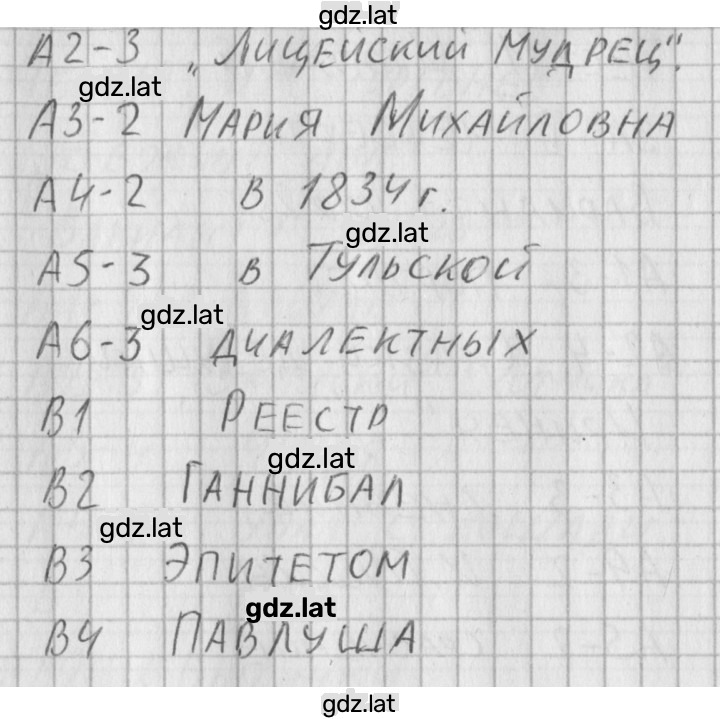 gdz.lat
А2-3 „Лицейский Мудрец".
gdz.lat
А3-2 Мария Михайловна
А4-2 в 1834 г.
gdz.lat
А5-3 в Тульской
gdz.lat
А6-3 диалектных
В1 Реестр
gdz.lat
В2 Ганнибал
gdz.lat
В3 Эпитетом
gdz.lat
В4 Павлуша
gdz.lat